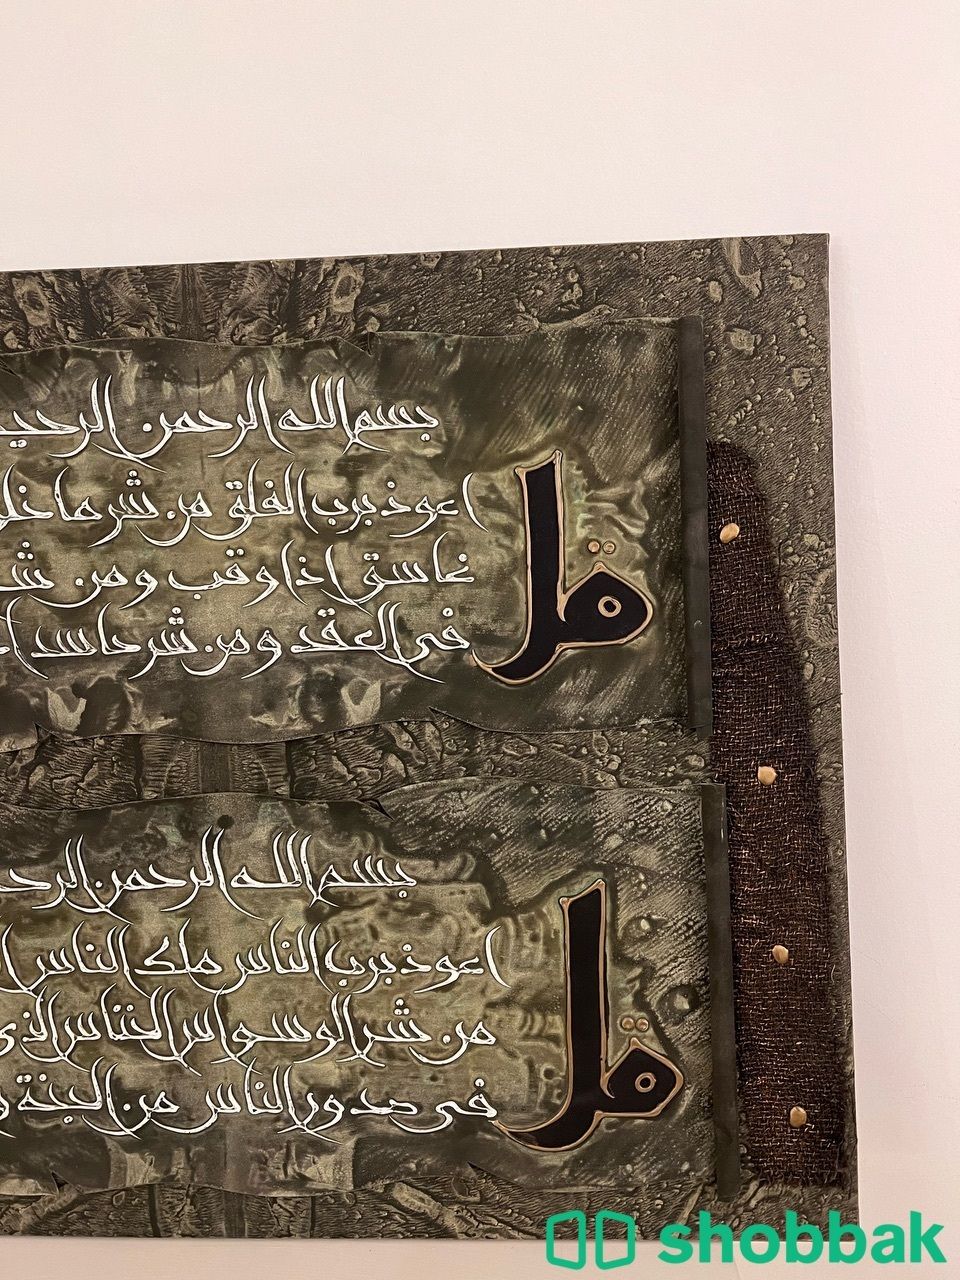 بسم الله الرحمن الرحيـ
قل
اعوذ برب الفلق من شر ما خلـ
غاسق اذا وقب ومن شـ
فى العقد ومن شر حاسد ا
بسم الله الرحمن الرحـ
قل
اعوذ برب الناس ملك الناس ا
من شر الوسواس الخناس الذى
فى صدور الناس من الجنة و
shobbak